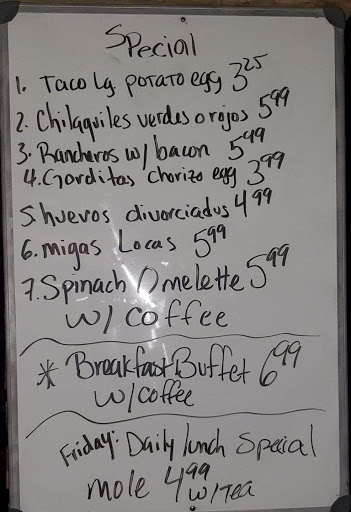 Special
1. Taco Lg potato egg 3.25
2. Chilaquiles verdes o rojos 5.99
3. Rancheros w/ bacon 5.99
4. Gorditas chorizo egg 3.99
5. huevos divorciadus 4.99
6. migas Locas 5.99
7. Spinach Omelette 5.99
w/ coffee
* Breakfast Buffet 6.99
w/coffee
Friday: Daily lunch Special
mole 4.99 w/Tea